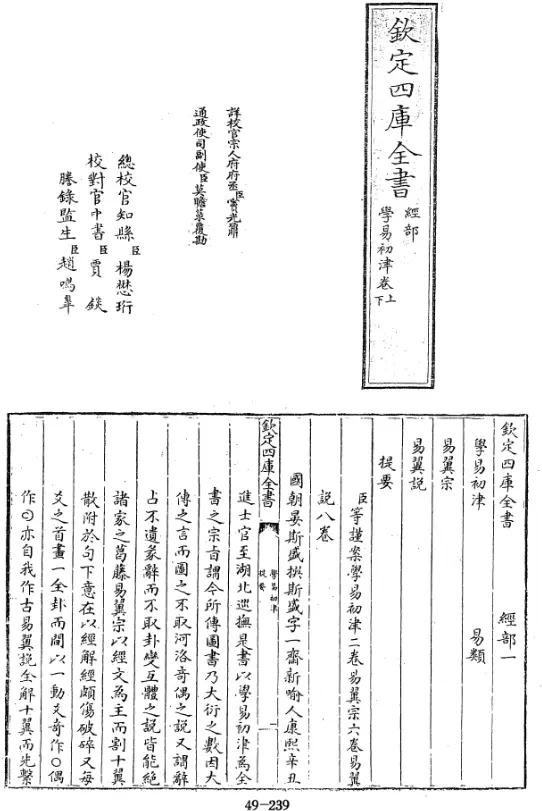 欽定四庫全書
經部
學易初津卷上下
詳校官宗人府府丞臣竇光鼐
通政使司副使臣莫瞻菉覆勘
總校官知縣臣楊懋珩
校對官中書臣賈鋑
謄錄監生臣趙鳴臯
欽定四庫全書 經部一
學易初津 易類
易翼宗
易翼說
提要
臣等謹案學易初津二卷易翼宗六卷易翼
說八卷
國朝晏斯盛撰斯盛字一齋新喻人康熙辛丑
欽定四庫全書
學易初津
提要
一
進士官至湖北巡撫是書以學易初津為全
書之宗旨謂今所傳圖書乃大衍之數因大
傳之言而圖之不取河洛奇偶之說又謂辭
占不遺象辭而不取卦變互體之說皆能絶
諸家之葛藤易翼宗以經文為主而割十翼
散附於句下意在以經解經頗傷破碎又每
爻之首畫一全卦而間以一動爻奇作○偶
作亦自我作古易翼說全解十翼而先繫
49-239